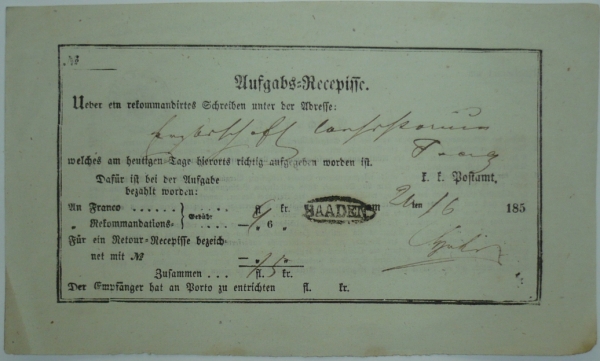 №
Aufgabs-Recepisse.
Ueber ein rekommandirtes Schreiben unter der Adresse:
welches am heutigen Tage hierorts richtig aufgegeben worden ist.
Dafür ist bei der Aufgabe bezahlt worden:
k. k. Postamt.
An Franco . . . . . . fl. kr.
Gebühr
BAADEN am 185
„ Rekommandations- — „ 6 „
Für ein Retour-Recepisse bezeich-
net mit № — „ „
Zusammen . . . fl. kr.
Der Empfänger hat an Porto zu entrichten fl. kr.